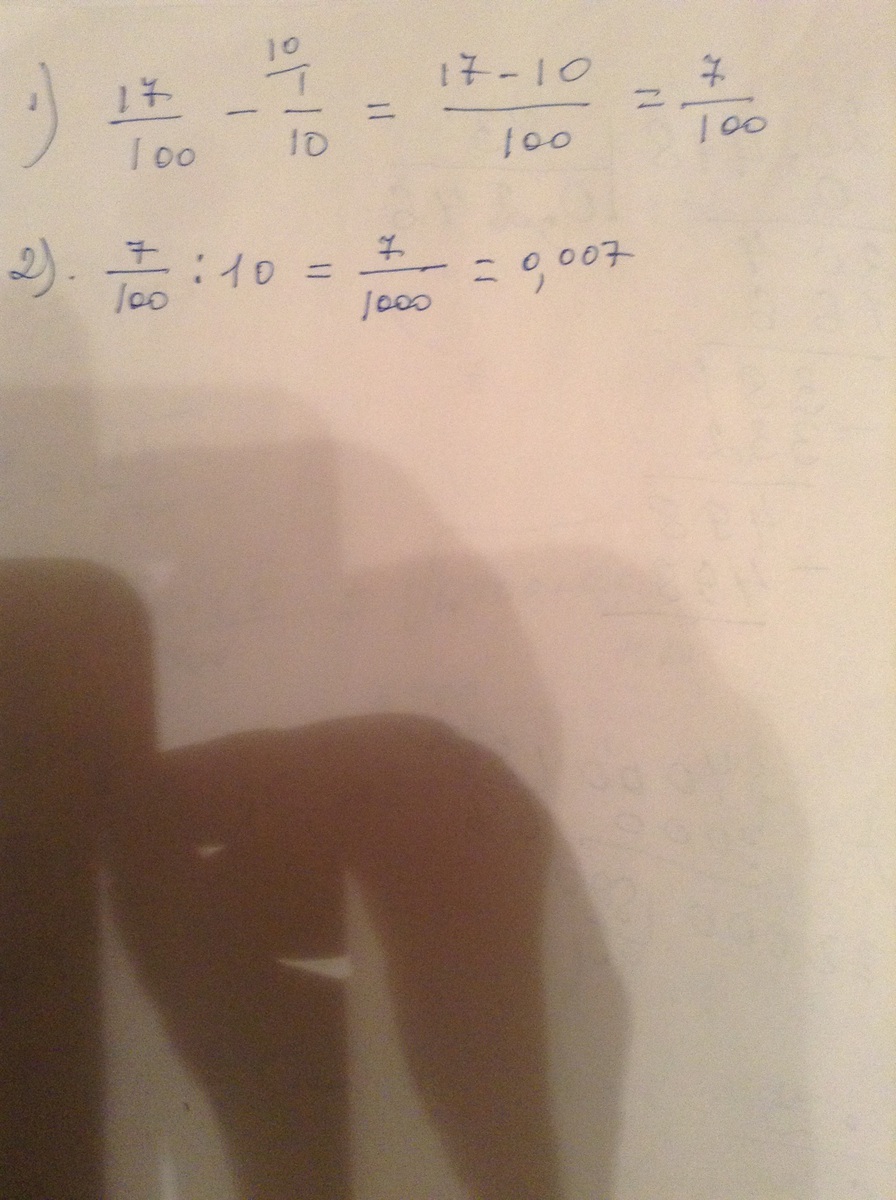 1) 17/100 - 10/1/10 = 17-10/100 = 7/100
2). 7/100 : 10 = 7/1000 = 0,007